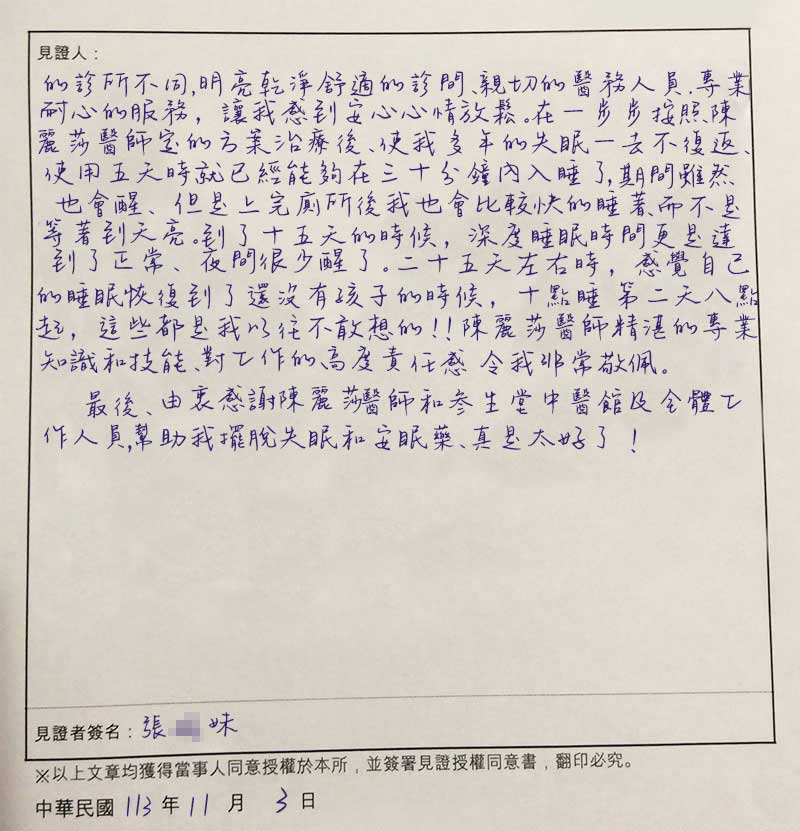 見證人：
的診所不同,明亮乾淨舒適的診間、親切的醫務人員.專業
耐心的服務，讓我感到安心心情放鬆。在一步步按照、陳
麗莎醫師定的方案治療後、使我多年的失眠一去不復返、
使用五天時就已經能夠在三十分鐘內入睡了,期間雖然
也會醒、但是上完廁所後我也會比較快的睡著、而不是
等著到天亮。到了十五天的時候，深度睡眠時間更是達
到了正常、夜間很少醒了。二十五天左右時，感覺自己
的睡眠恢復到了還沒有孩子的時候，十點睡 第二天八點
起，這些都是我以往不敢想的！！陳麗莎醫師精湛的專業
知識和技能、對工作的、高度責任感 令我非常敬佩。
最後、由衷感謝陳麗莎醫師和參生堂中醫館及全體工
作人員,幫助我擺脫失眠和安眠藥、真是太好了！
見證者簽名：張 妹
※以上文章均獲得當事人同意授權於本所，並簽署見證授權同意書，翻印必究。
中華民國 113 年 11 月 3 日